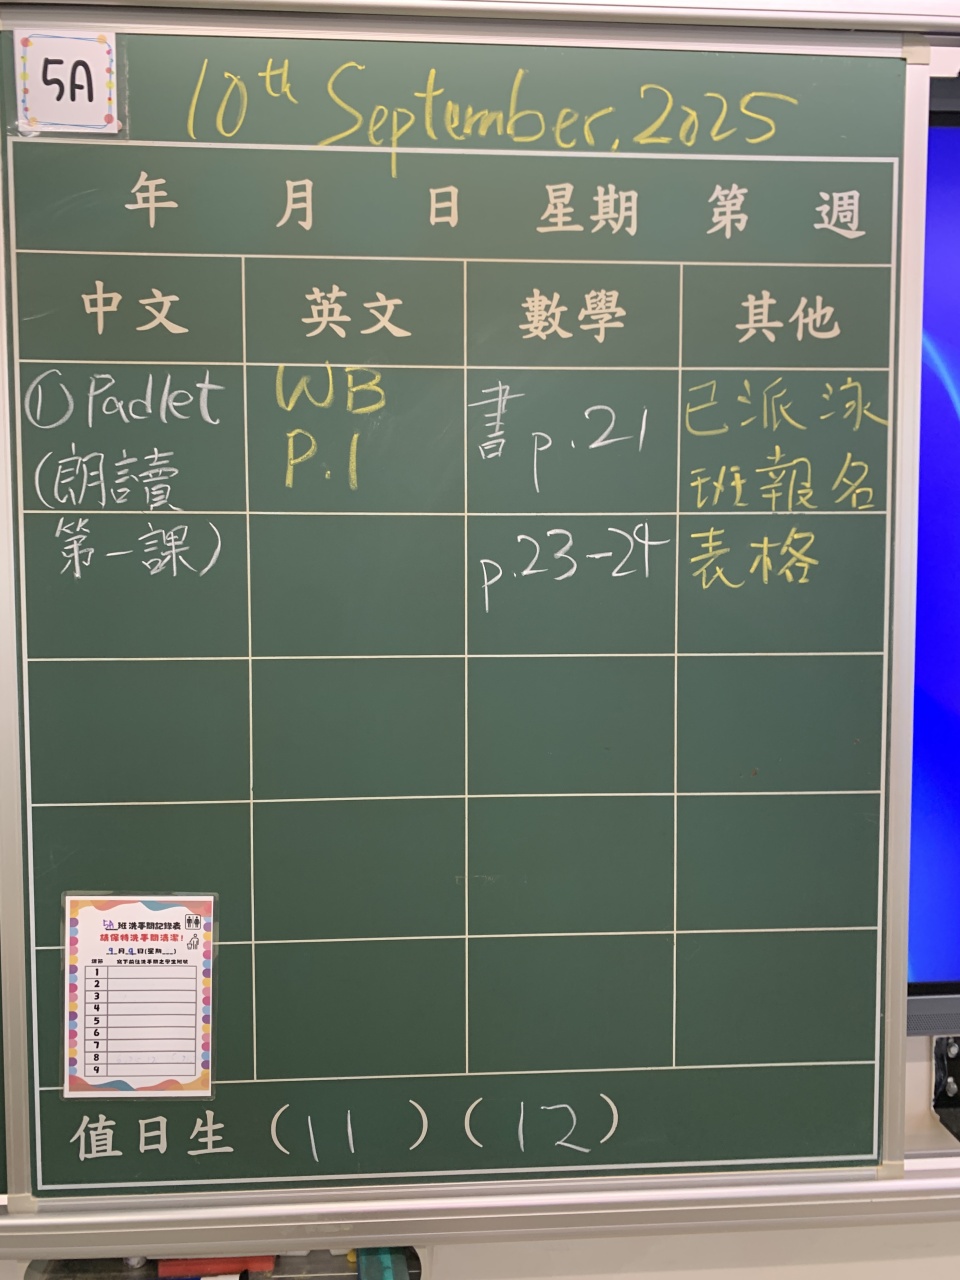 5A
10th September, 2025
年 月 日 星期 第 週
中文 英文 數學 其他
①Padlet
(朗讀
第一課)
WB
P.1
書 p.21
p.23-24
已派泳
班報名
表格
5A 班洗手間記錄表
請保持洗手間清潔!
9月9日(星期__)
課節 寫下前往洗手間之學生班號
1
2
3
4
5
6
7
8
9
值日生 (11) (12)